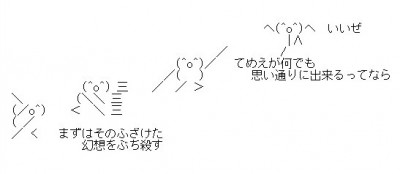 ヘ(^o^)ヘ いいぜ
てめえが何でも
思い通りに出来るってなら
まずはそのふざけた
幻想をぶち殺す